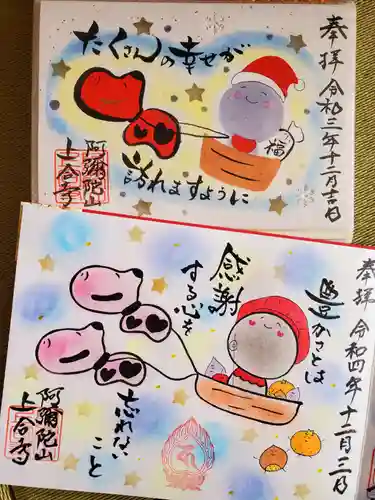 奉拝 令和三年十二月吉日
たくさんの幸せが
福
訪れますように
阿彌陀山
上合寺
奉拝 令和四年十二月三日
豊かさとは
感謝
する心を
忘れない
こと
阿彌陀山
上合寺